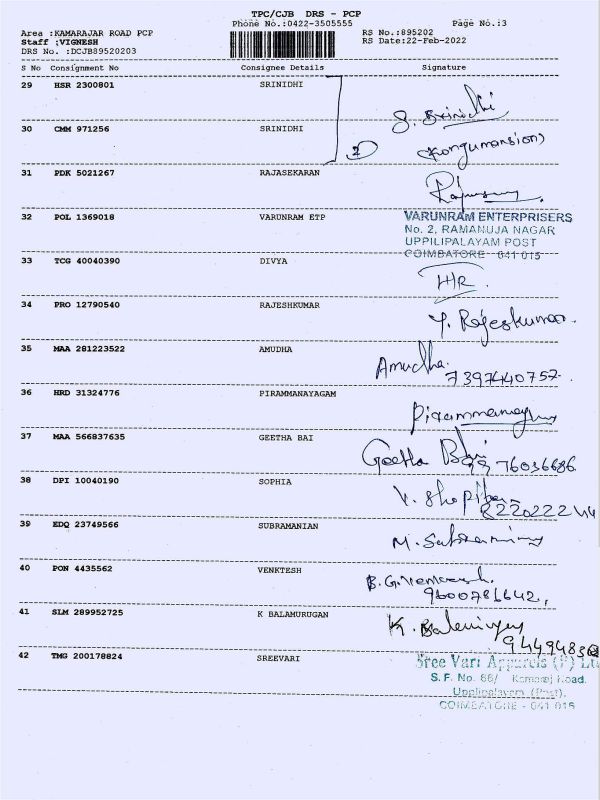 TPC/CJB DRS - PCP
Phone No.:0422-3505555
Page No.:3
Area :KAMARAJAR ROAD PCP
Staff :VIGNESH
DRS No. :DCJB89520203
RS No.:895202
RS Date:22-Feb-2022
S No Consignment No Consignee Details Signature
29 HSR 2300801 SRINIDHI
S. Srinidhi
30 CMM 971256 SRINIDHI
2
(Kongumansion)
31 PDK 5021267 RAJASEKARAN
32 POL 1369018 VARUNRAM ETP
VARUNRAM ENTERPRISERS
No. 2, RAMANUJA NAGAR
UPPILIPALAYAM POST
COIMBATORE - 641 015
33 TCG 40040390 DIVYA
34 PRO 12790540 RAJESHKUMAR
Y. Rajeskumar.
35 MAA 281223522 AMUDHA
Amudha.
7397440757.
36 HRD 31324776 PIRAMMANAYAGAM
37 MAA 566837635 GEETHA BAI
Geetha Bai
9976036686
38 DPI 10040190 SOPHIA
39 EDQ 23749566 SUBRAMANIAN
40 PON 4435562 VENKTESH
9600781642,
41 SLM 289952725 K BALAMURUGAN
42 TMG 200178824 SREEVARI
Sree Vari Apparels (P) Lt
S.F. No. 66/ Kamaraj Road.
Uppilipalayam (Post),
COIMBATORE - 641 015